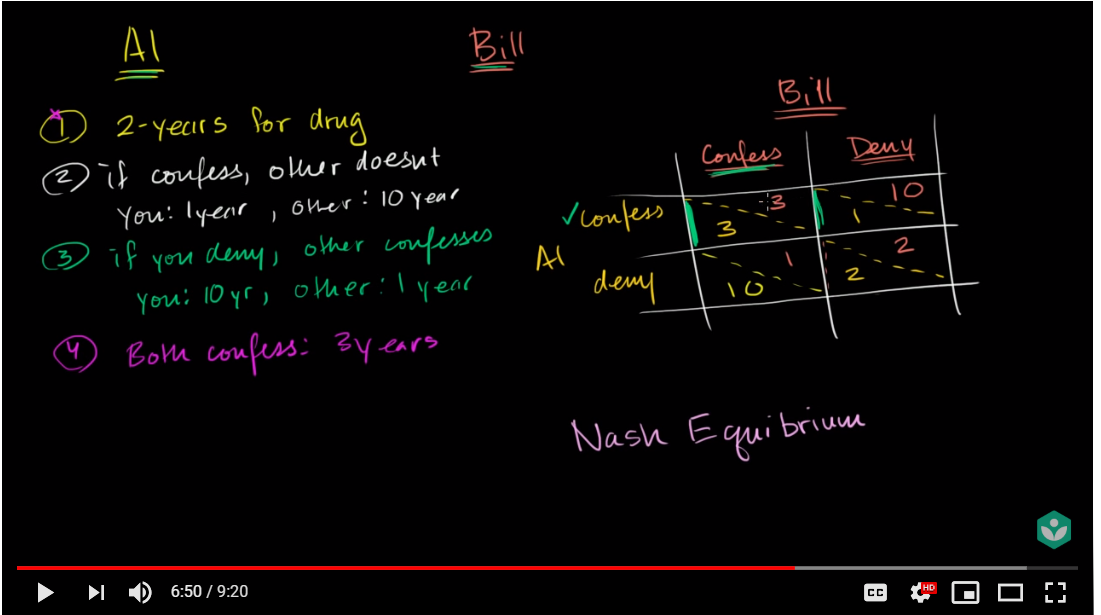 Al
Bill
1 2-years for drug
2 if confess, other doesnt
you: 1year , other: 10 year
3 if you deny, other confesses
you: 10yr, other: 1 year
4 Both confess: 3years
Bill
Confess Deny
✓confess 3 3 10 1
Al
deny 1 10 2 2
Nash Equibrium
6:50 / 9:20
CC
HD